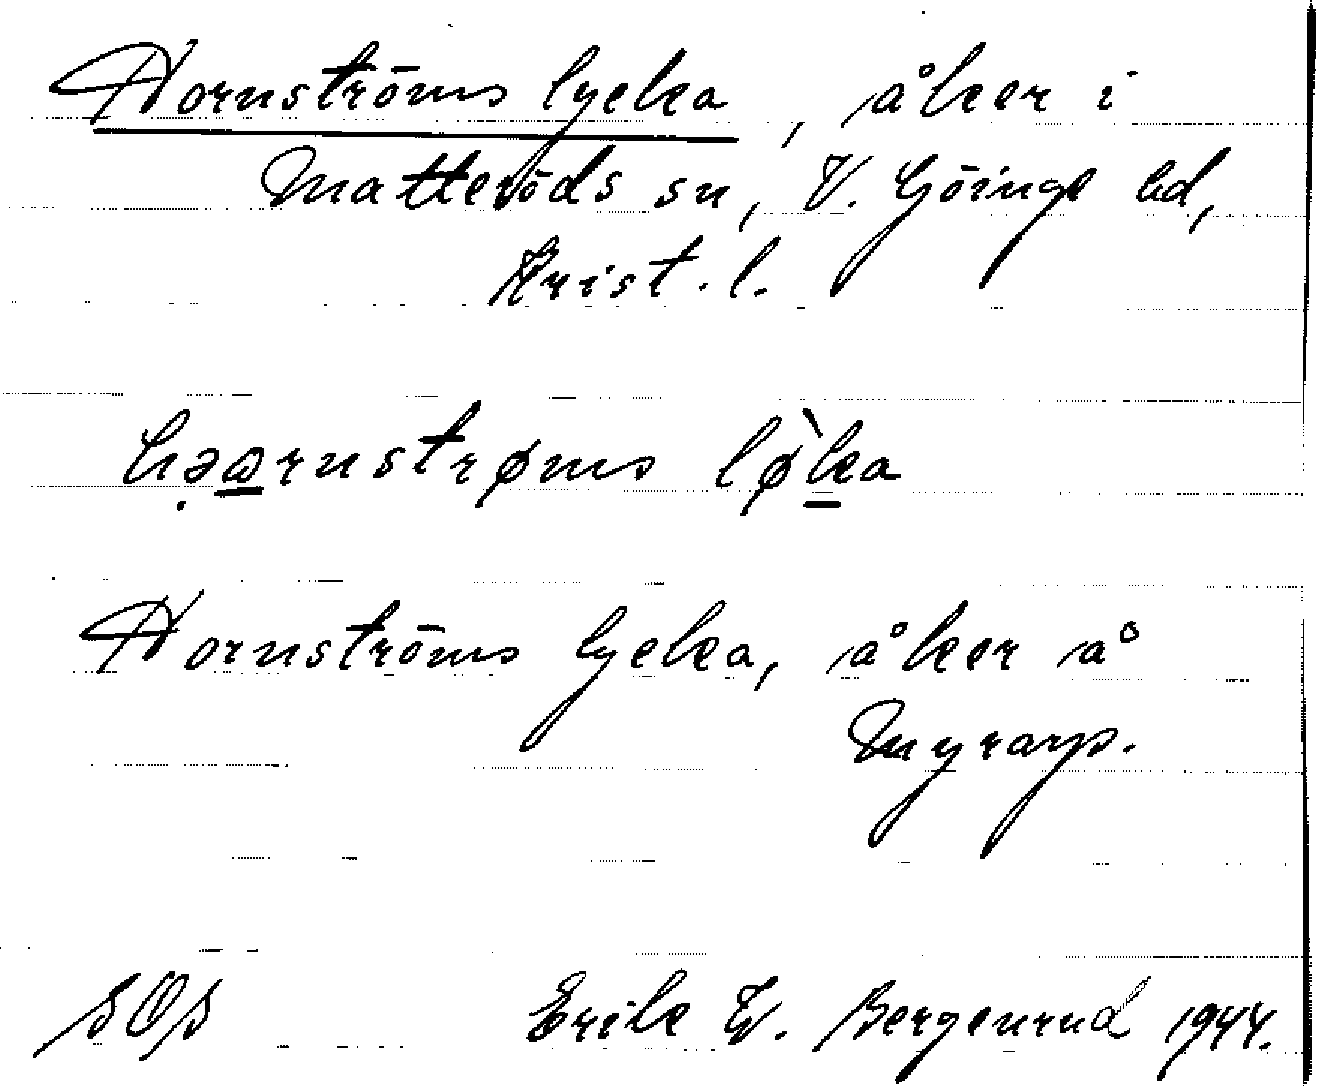 Hornströms lycka, åker i
Matteröds sn, V. Göinge hd,
Krist. l.
hə̣ɷrnstrøms lø̀ka
Hornströms lycka, åker å
Myrarp.
SOS Erik W. Bergenrud 1944.